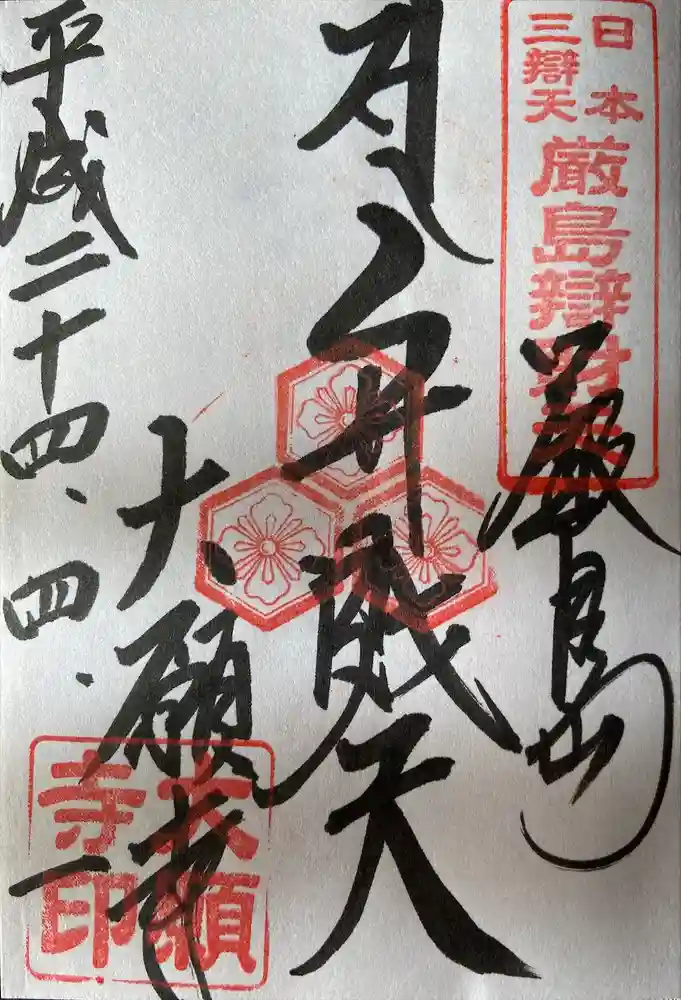 日本
三辯天
厳島辯財天
嚴島山
大弁財天
大願寺
平成二十四、四、一
大願
寺印